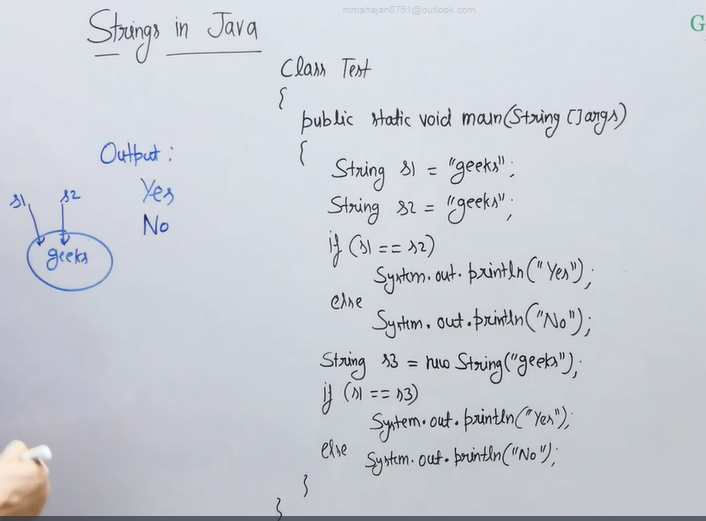 mmahajan8751@outlook.com
G
Strings in Java
Class Test
{
public static void main(String []args)
{
String s1 = "geeks";
String s2 = "geeks";
if (s1 == s2)
System.out.println("Yes");
else
System.out.println("No");
String s3 = new String("geeks");
if (s1 == s3)
System.out.println("Yes");
else System.out.println("No");
}
}
Output:
Yes
No
s1 s2
geeks